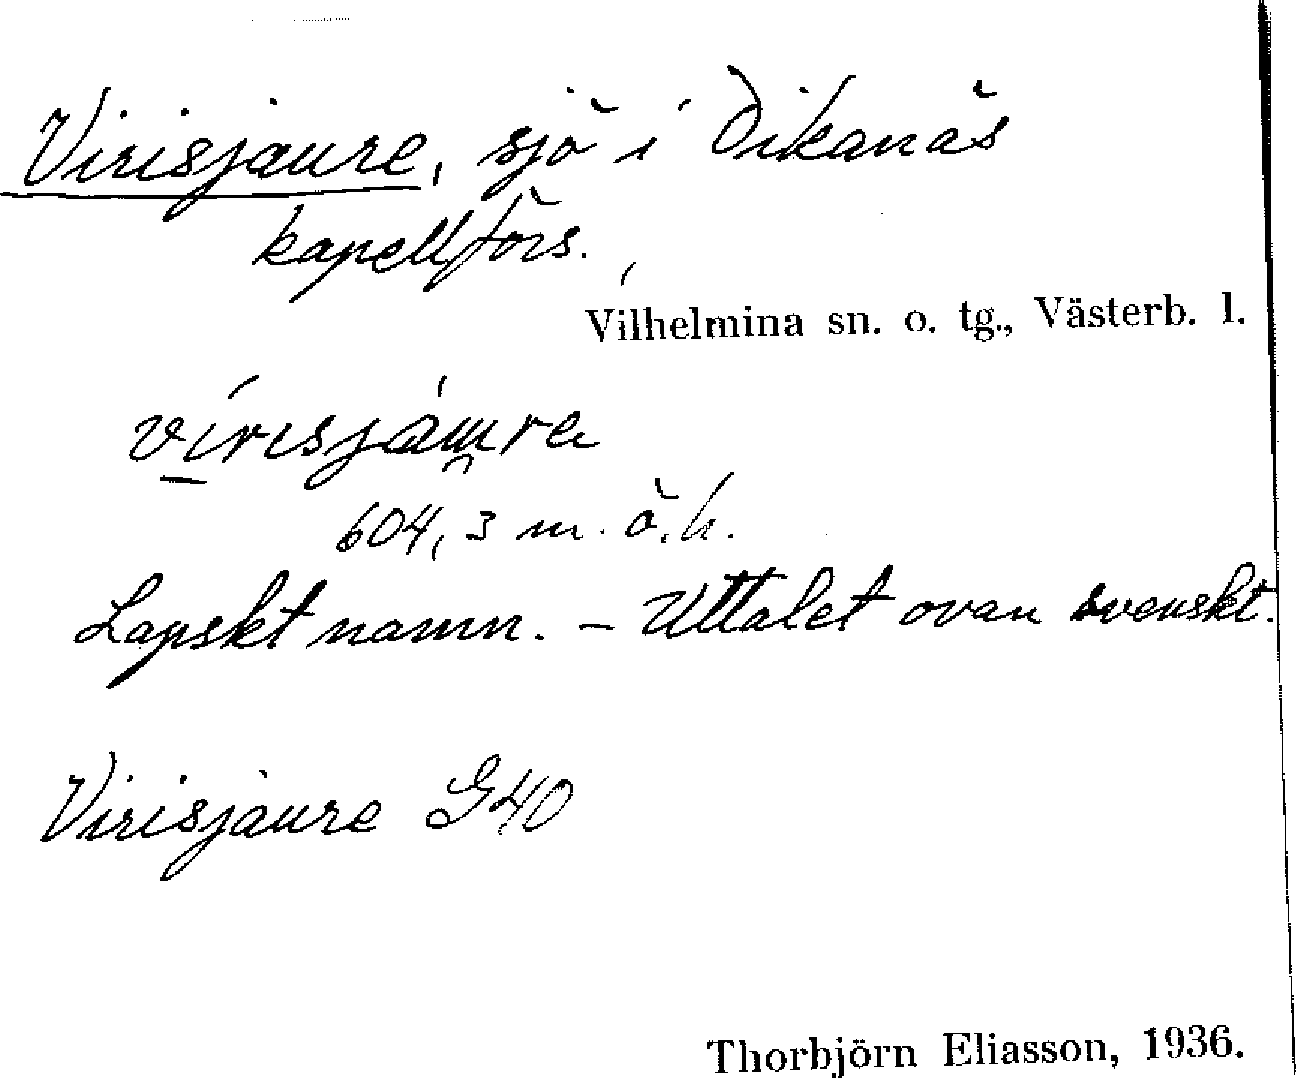 Virisjaure, sjö i Dikanäs
kapellförs.
Vilhelmina sn. o. tg., Västerb. l.
604,3 m. ö.h.
Lapskt namn. – Uttalet ovan svenskt.
Virisjaure G40
Thorbjörn Eliasson, 1936.